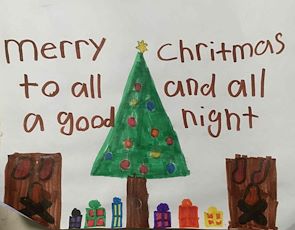 merry chritmas
to all and all
a good night